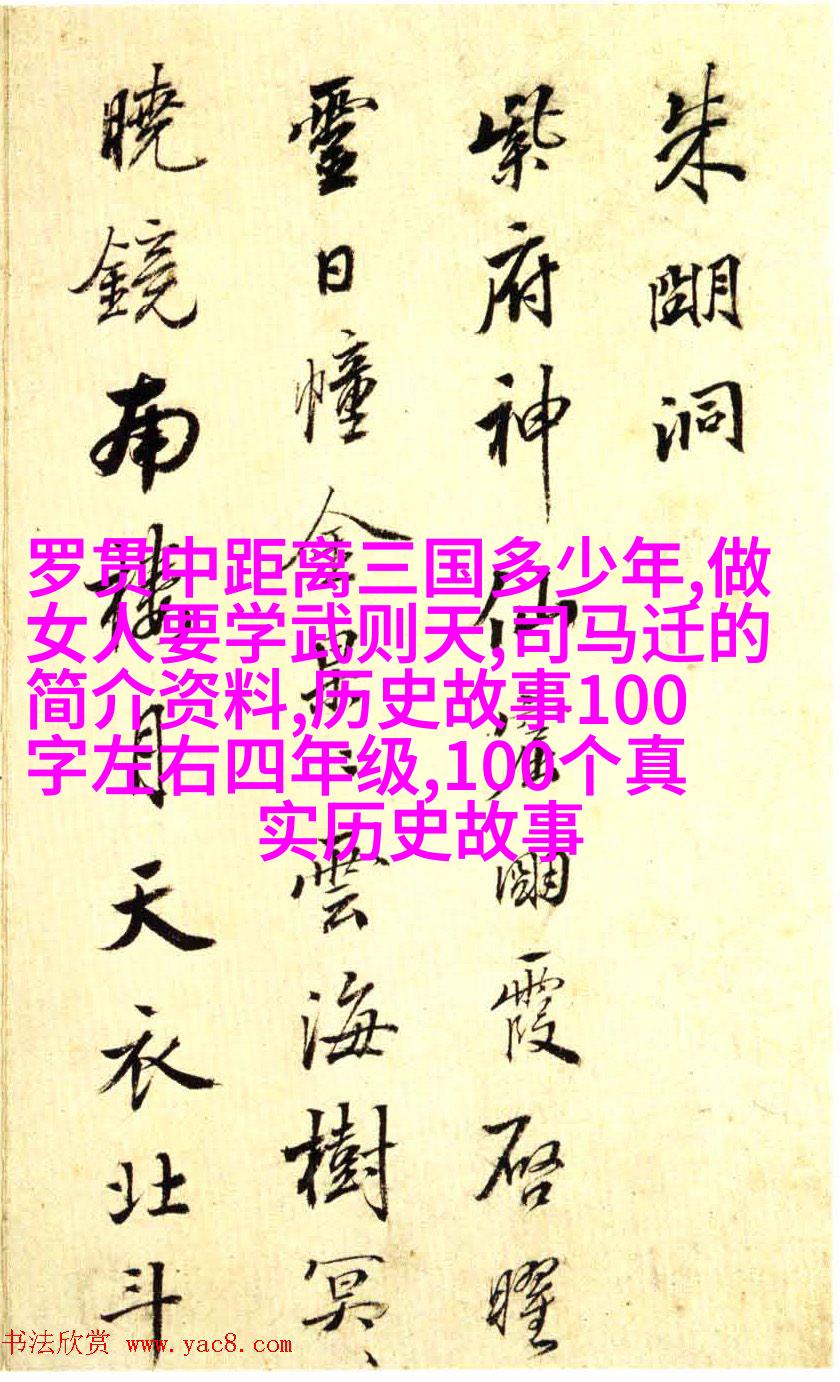 朱朙洞
紫府神仙䆠朙霞啓曜
靈日幢金景〻雲海樹冥〻
曉鏡南樓月天衣北斗
罗贯中距离三国多少年,做
女人要学武则天,司马迁的
简介资料,历史故事100
字左右四年级,100个真
实历史故事
书法欣赏 www.yac8.com